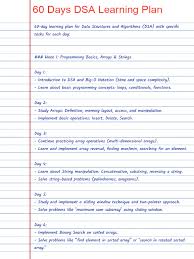 60 Days DSA Learning Plan
60-day learning plan for Data Structures and Algorithms (DSA) with specific
tasks for each day:
### Week 1: Programming Basics, Arrays & Strings
Day 1:
- Introduction to DSA and Big-O Notation (time and space complexity).
- Learn about basic programming concepts: loops, conditionals, functions.
Day 2:
- Study Arrays: Definition, memory layout, access, and manipulation.
- Learn basic operations: Insert, Delete, Traverse.
Day 3:
- Continue practicing array operations (multi-dimensional arrays).
- Learn and implement array reversal, finding max/min, searching for an element.
Day 4:
- Learn String manipulation: Concatenation, substring, reversing a string.
- Solve string-based problems (palindromes, anagrams).
Day 5:
- Study and implement a sliding window technique and two-pointer approach.
- Solve problems like "maximum sum subarray" using sliding window.
Day 6:
- Implement Binary Search on sorted arrays.
- Solve problems like "find element in sorted array" or "search in rotated sorted
array"